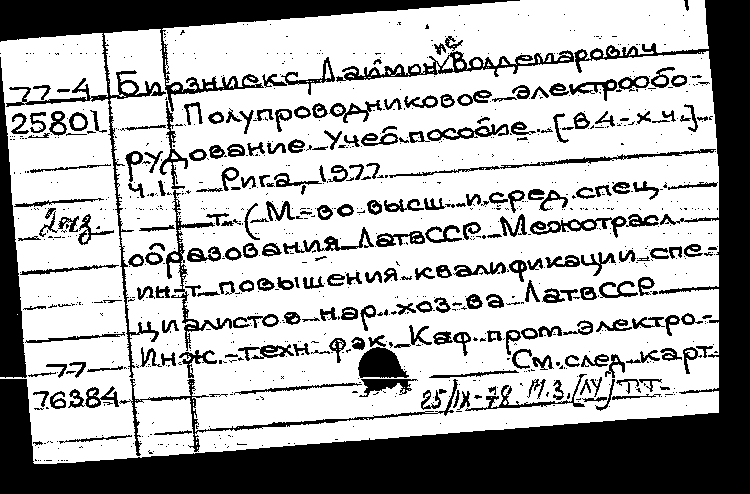 77-4 Бирзниекс, Лаймонис Волдемарович
25801 Полупроводниковое электрообо-
рудование. Учеб. пособие [В 4-х ч.]
Ч. 1- Рига, 1977
2 экз. т. (М-во высш. и сред. спец.
образования ЛатвССР. Межотрасл.
ин-т повышения квалификации спе-
циалистов нар. хоз-ва ЛатвССР.
Инж.-техн. фак. Каф. пром. электро-
77 См. след. карт.
76384 25/IX-78 М.З. [ЛУ] ТТ